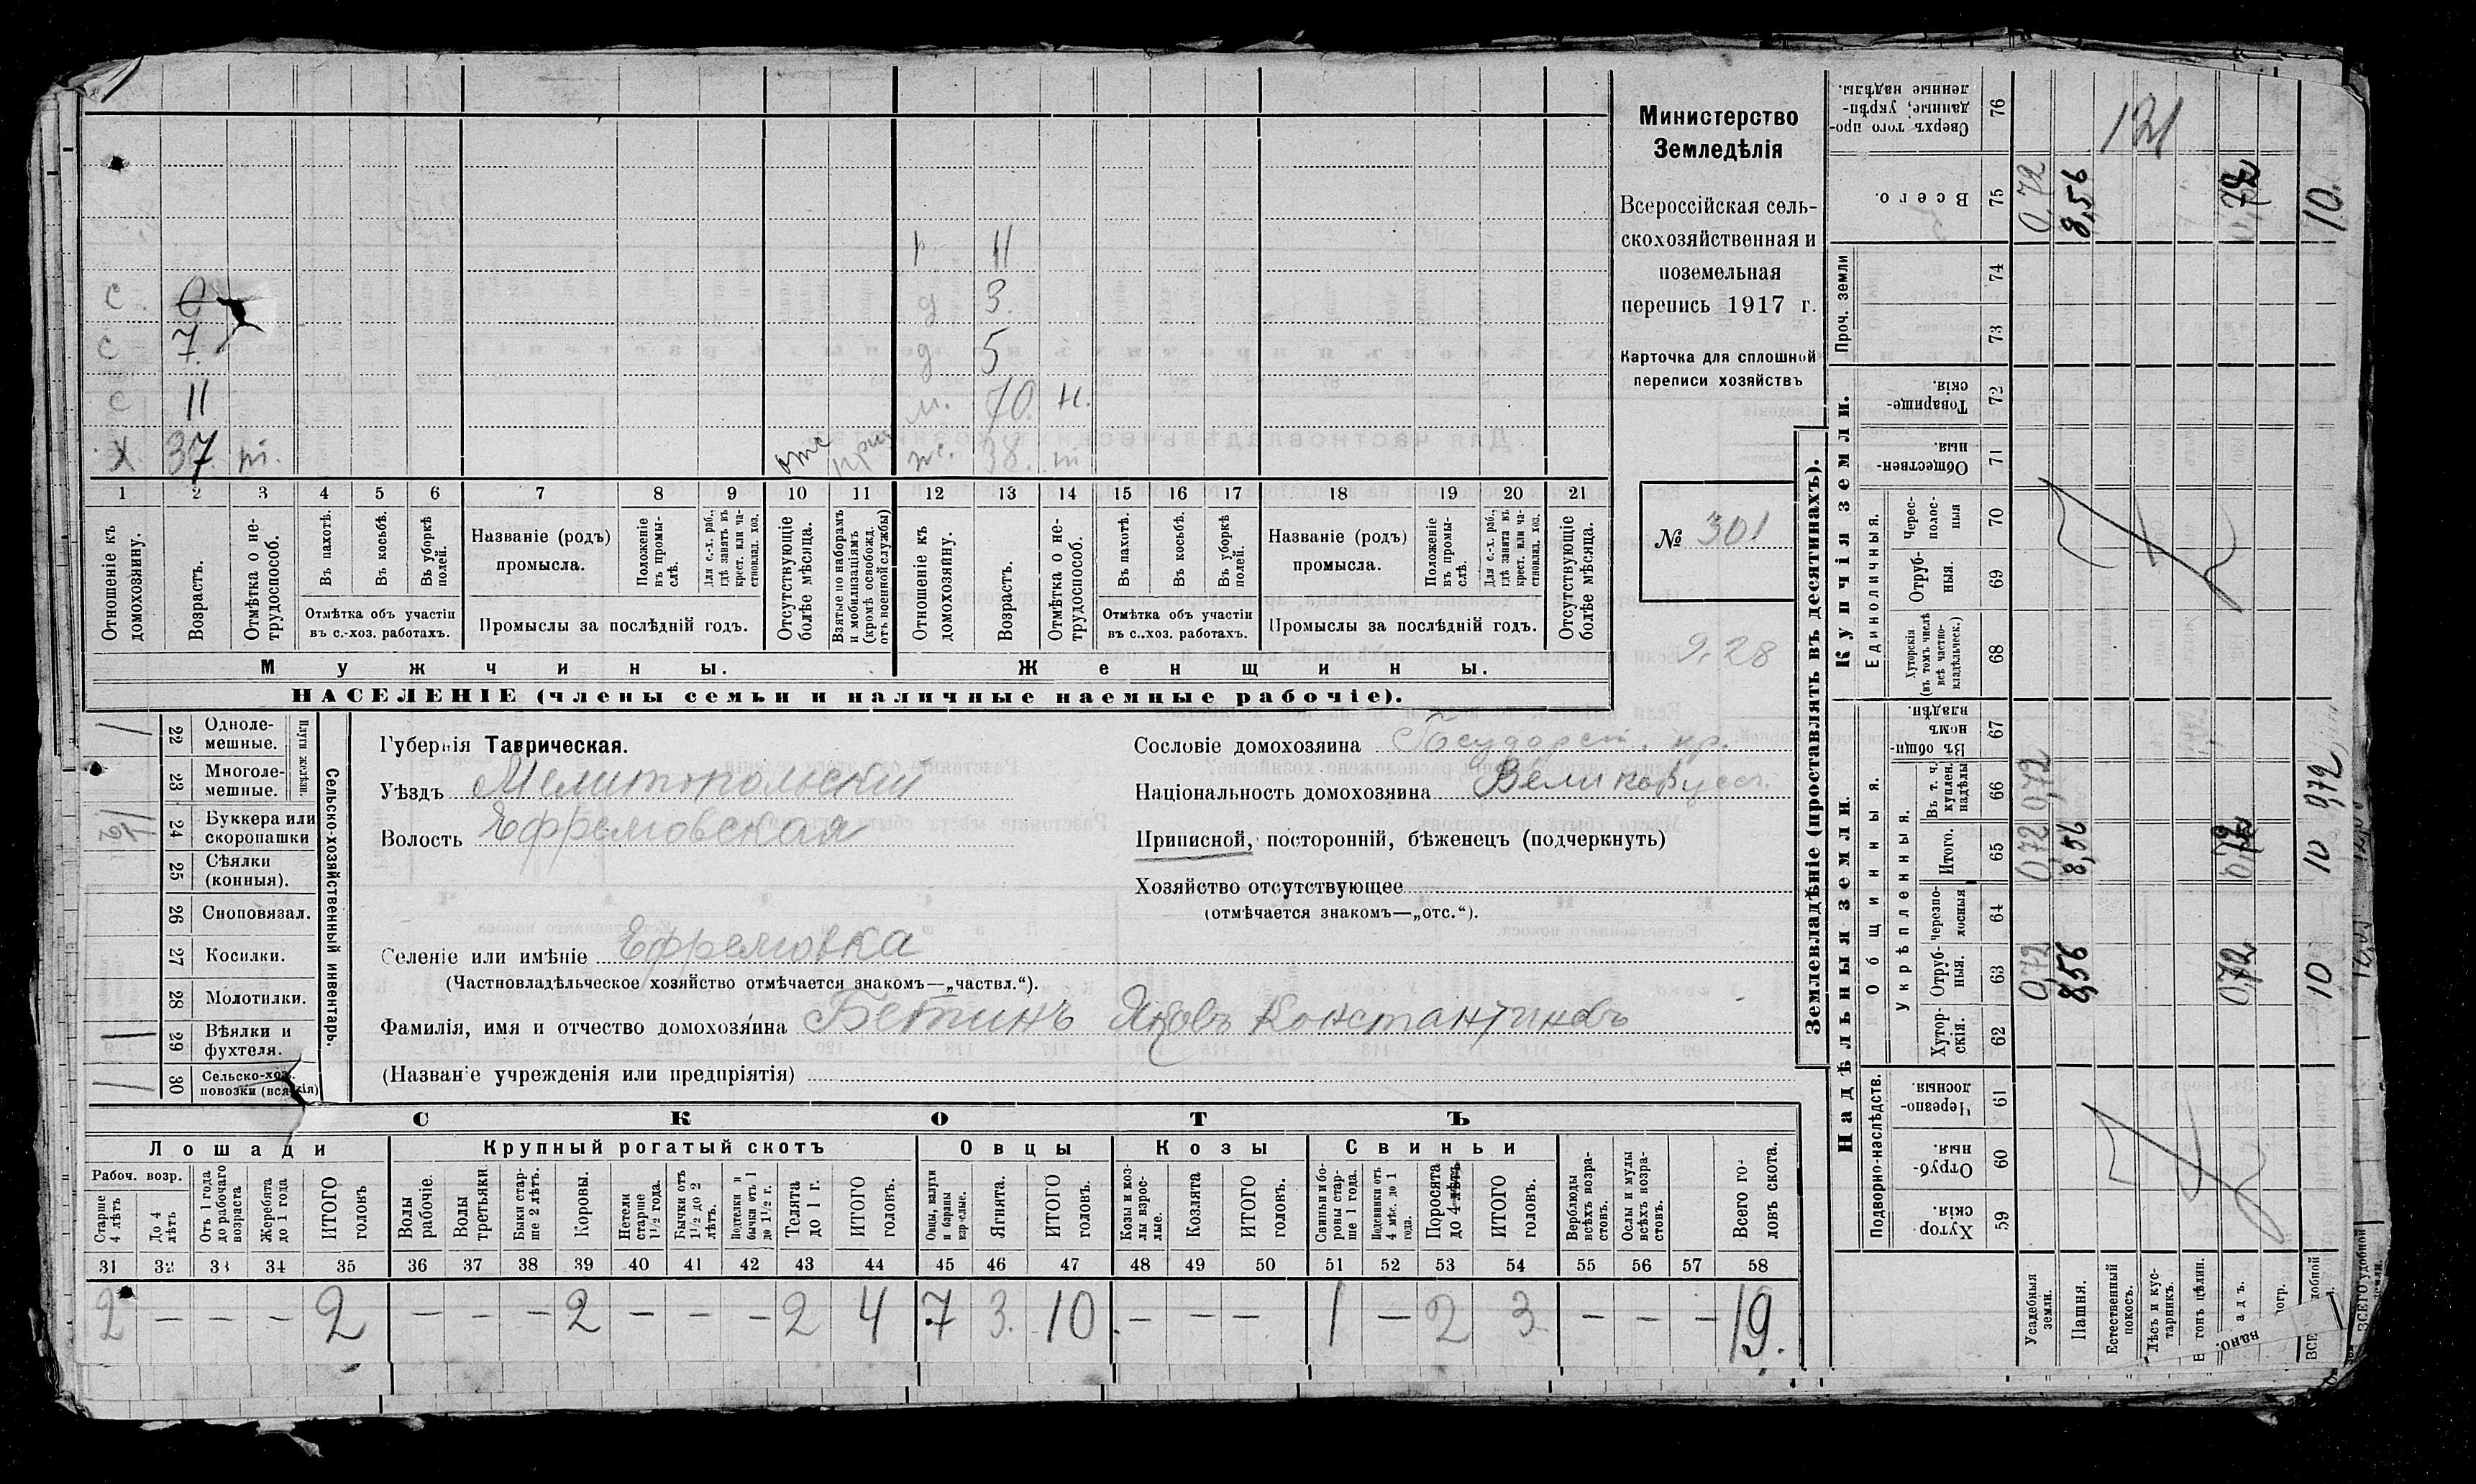 Министерство
Земледѣлія
Всероссійская сель-
скохозяйственная и
поземельная
перепись 1917 г.
Карточка для сплошной
переписи хозяйствъ
№ 301
9,28
р 11
с. 6 д 3.
с 7. д 5
с 11 м. 70. н.
х 37. т. отс ж. 38. т
1 2 3 4 5 6 7 8 9 10 11 12 13 14 15 16 17 18 19 20 21
Отношеніе къ домохозяину.
Возрастъ.
Отмѣтка о не-трудоспособ.
Въ пахотѣ.
Въ косьбѣ.
Въ уборкѣ полей.
Отмѣтка объ участіи въ с.-хоз. работахъ.
Названіе (родъ) промысла.
Положеніе въ промы-слѣ.
Для с.-х. раб., гдѣ занятъ въ крест. или ча-стновлад. хоз.
Промыслы за послѣдній годъ.
Отсутствующіе болѣе мѣсяца.
Взятые по наборамъ и мобилизаціямъ (кромѣ освобожд. отъ военной службы)
Отношеніе къ домохозяину.
Возрастъ.
Отмѣтка о не-трудоспособ.
Въ пахотѣ.
Въ косьбѣ.
Въ уборкѣ полей.
Отмѣтка объ участіи въ с..хоз. работахъ.
Названіе (родъ) промысла.
Положеніе въ промы-слѣ.
Для с.-х. раб., гдѣ занята въ крест. или ча-стновлад. хоз.
Промыслы за послѣдній годъ.
Отсутствующіе болѣе мѣсяца.
Мужчины. Женщины.
НАСЕЛЕНІЕ (члены семьи и наличные наемные рабочіе).
Сельско-хозяйственный инвентарь.
Плуги желѣзн.
22 Одноле-мешные.
23 Многоле-мешные.
24 Буккера или скоропашки
25 Сѣялки (конныя).
26 Сноповязал.
27 Косилки.
28 Молотилки.
29 Вѣялки и фухтеля.
30 Сельско-хоз. повозки (всякія)
Губернія Таврическая.
Уѣздъ Мелитопольскій
Волость Ефремовская
Сословіе домохозяина Государст. кр.
Національность домохозяина Великорусс.
Приписной, посторонній, бѣженецъ (подчеркнуть)
Хозяйство отсутствующее
(отмѣчается знакомъ—„отс.“).
Селеніе или имѣніе Ефремовка
(Частновладѣльческое хозяйство отмѣчается знакомъ—„частвл.“).
Фамилія, имя и отчество домохозяина Бетинъ Яковъ Константиновъ
(Названіе учрежденія или предпріятія)
СКОТЪ
Лошади Крупный рогатый скотъ Овцы Козы Свиньи
Рабоч. возр.
Старше 4 лѣтъ
До 4 лѣтъ
Отъ 1 года до рабочаго возраста
Жеребята до 1 года
ИТОГО головъ
Волы рабочіе.
Волы третьяки
Быки стар-ше 2 лѣтъ.
Коровы.
Нетели старше 1 1/2 года.
Бычки отъ 1 1/2 до 2 лѣтъ.
Подтелки и бычки отъ 1 до 1 1/2 г.
Телята до 1 г.
ИТОГО головъ.
Овцы, валухи и бараны взрослые.
Ягнята.
ИТОГО головъ.
Козы и коз-лы взрос-лые.
Козлята
ИТОГО головъ.
Свиньи и бо-ровы стар-ше 1 года.
Подсвинки отъ 4 мѣс. до 1 года.
Поросята до 4
ИТОГО головъ.
Верблюды всѣхъ возра-стовъ.
Ослы и мулы всѣхъ возра-стовъ.
Всего го-ловъ скота.
31 32 33 34 35 36 37 38 39 40 41 42 43 44 45 46 47 48 49 50 51 52 53 54 55 56 57 58
2 — — — 2 — — — 2 — — — 2 4 7 3. 10 — — — 1 — 2 3 — — — 19.
Землевладѣніе (проставлять въ десятинахъ).
Купчія земли.
Надѣльныя земли.
Проч. земли
Единоличныя.
Общинныя.
Укрѣпленныя.
Подворно-наслѣдств.
Сверхъ того про-данные, укрѣп-ленные надѣлы. 76
Всего. 75
74
73
Товарище-скія. 72
Обществен-ныя. 71
Черес-полос-ныя 70
Отруб-ныя. 69
Хуторскія (въ томъ числѣ всѣ частно-владѣльческ.) 68
Въ общин-номъ владѣн. 67
Въ т. ч. куплен. надѣлы 66
Итого. 65
Черезпо-лосныя 64
Отруб-ныя. 63
Хутор-скія. 62
Черезпо-лосныя. 61
Отруб-ныя. 60
Хутор-скія. 59
121
0,72 8,56 0,72 10.
0,72 9,72
0,72 8,56 10
0,72 8,56 0,72 10
Усадебныя земли.
Пашня.
Естественный покосъ.
Лѣсъ и кус-тарникъ.